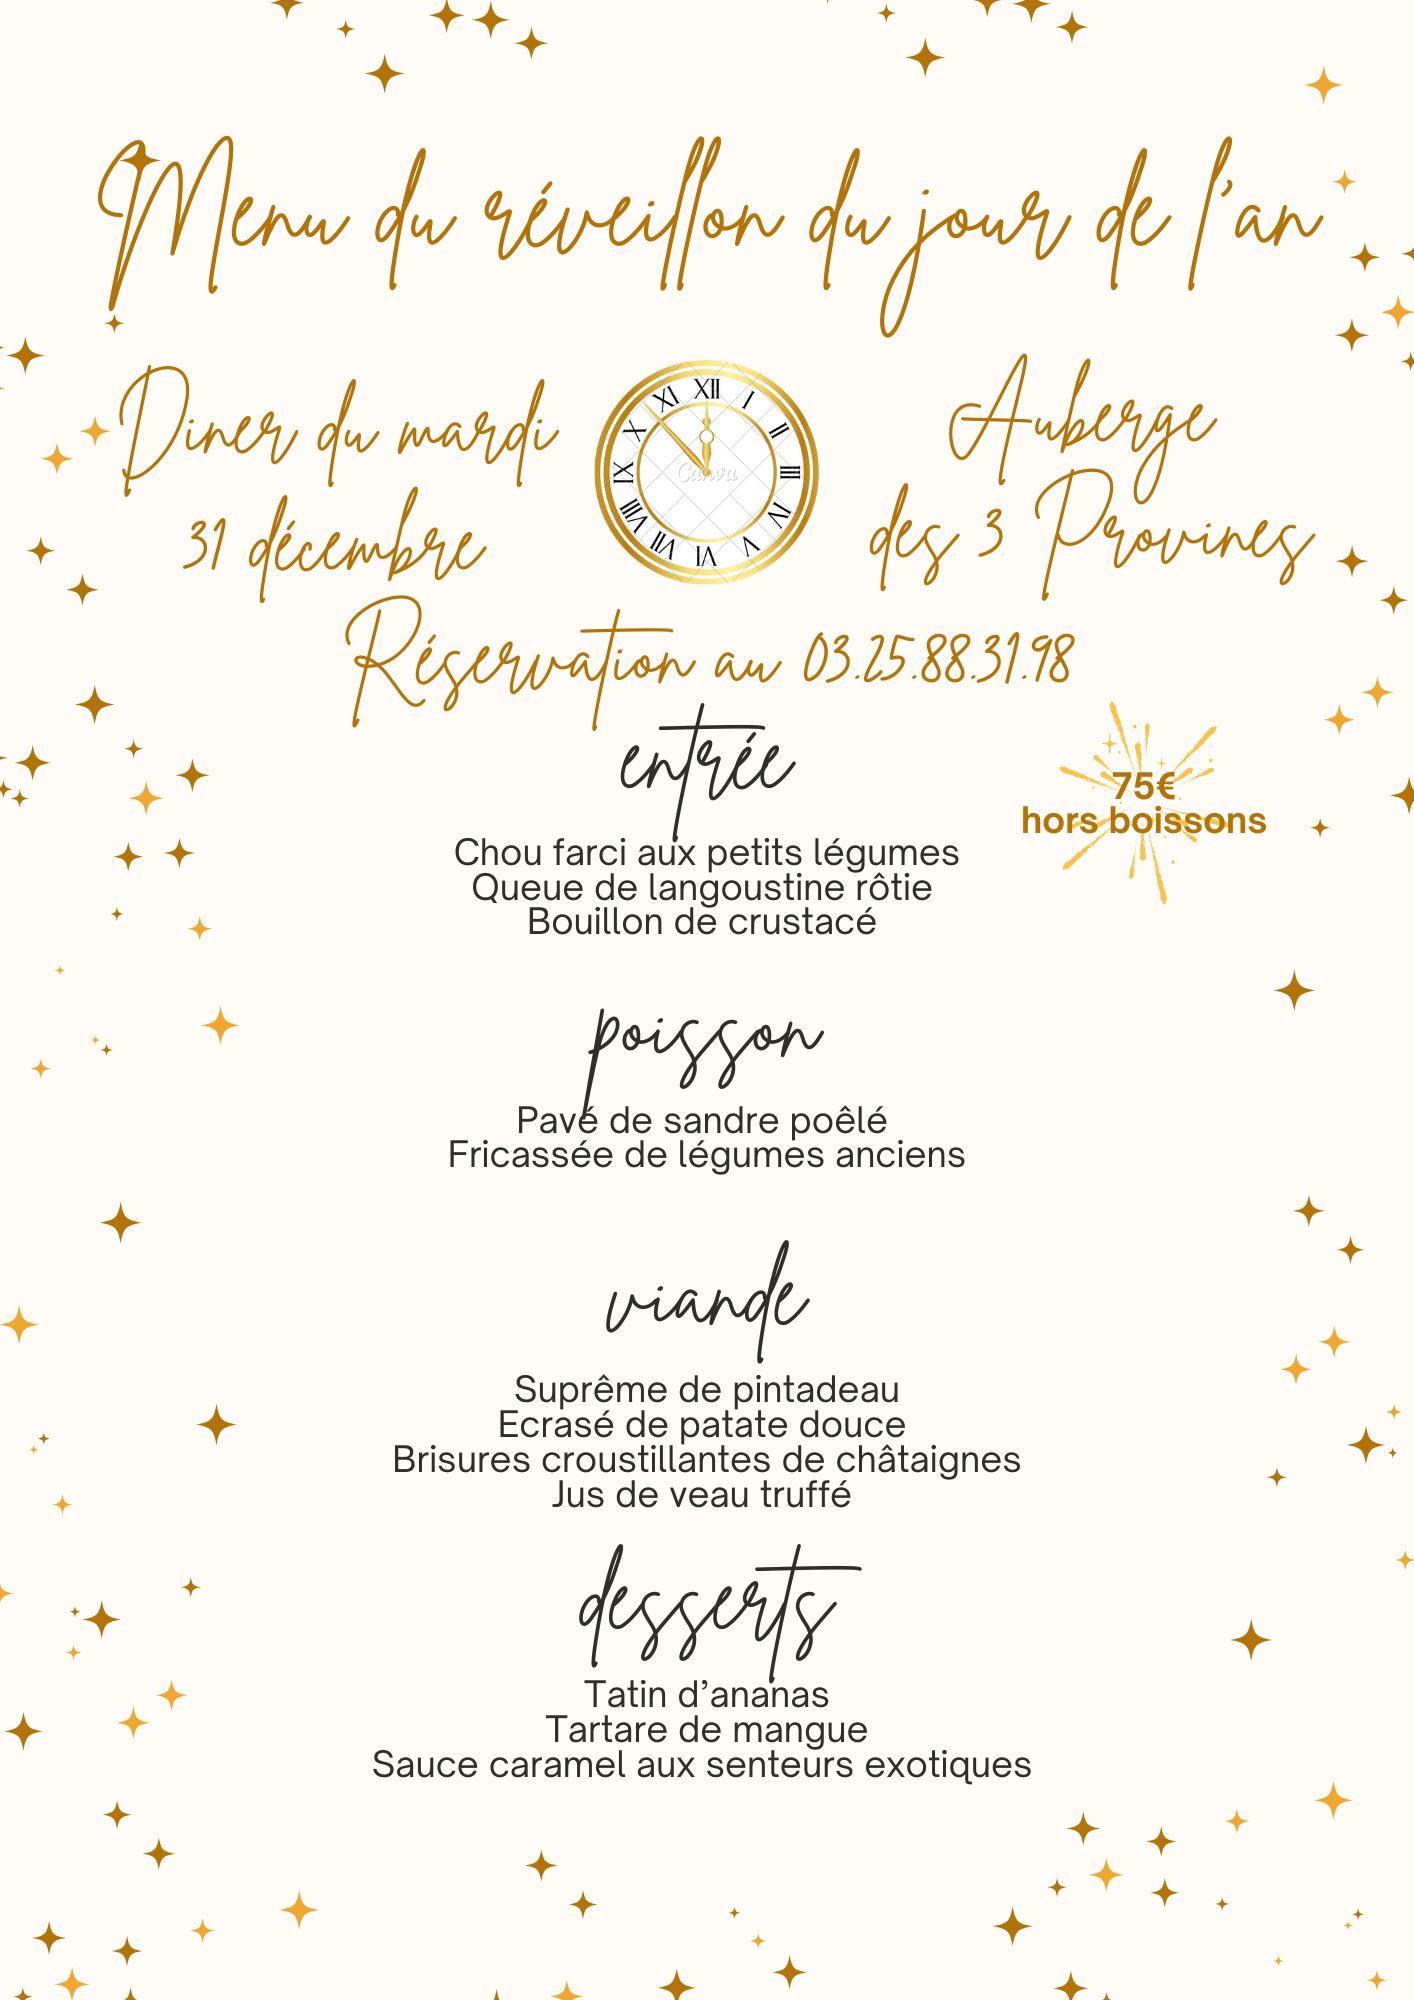 Menu du réveillon du jour de l'an
Diner du mardi
31 décembre
XII
I
II
III
IV
V
VI
VII
VIII
IX
X
XI
Canva
Auberge
des 3 Provines
Réservation au 03.25.88.31.98
entrée
75€
hors boissons
Chou farci aux petits légumes
Queue de langoustine rôtie
Bouillon de crustacé
poisson
Pavé de sandre poêlé
Fricassée de légumes anciens
viande
Suprême de pintadeau
Ecrasé de patate douce
Brisures croustillantes de châtaignes
Jus de veau truffé
desserts
Tatin d'ananas
Tartare de mangue
Sauce caramel aux senteurs exotiques